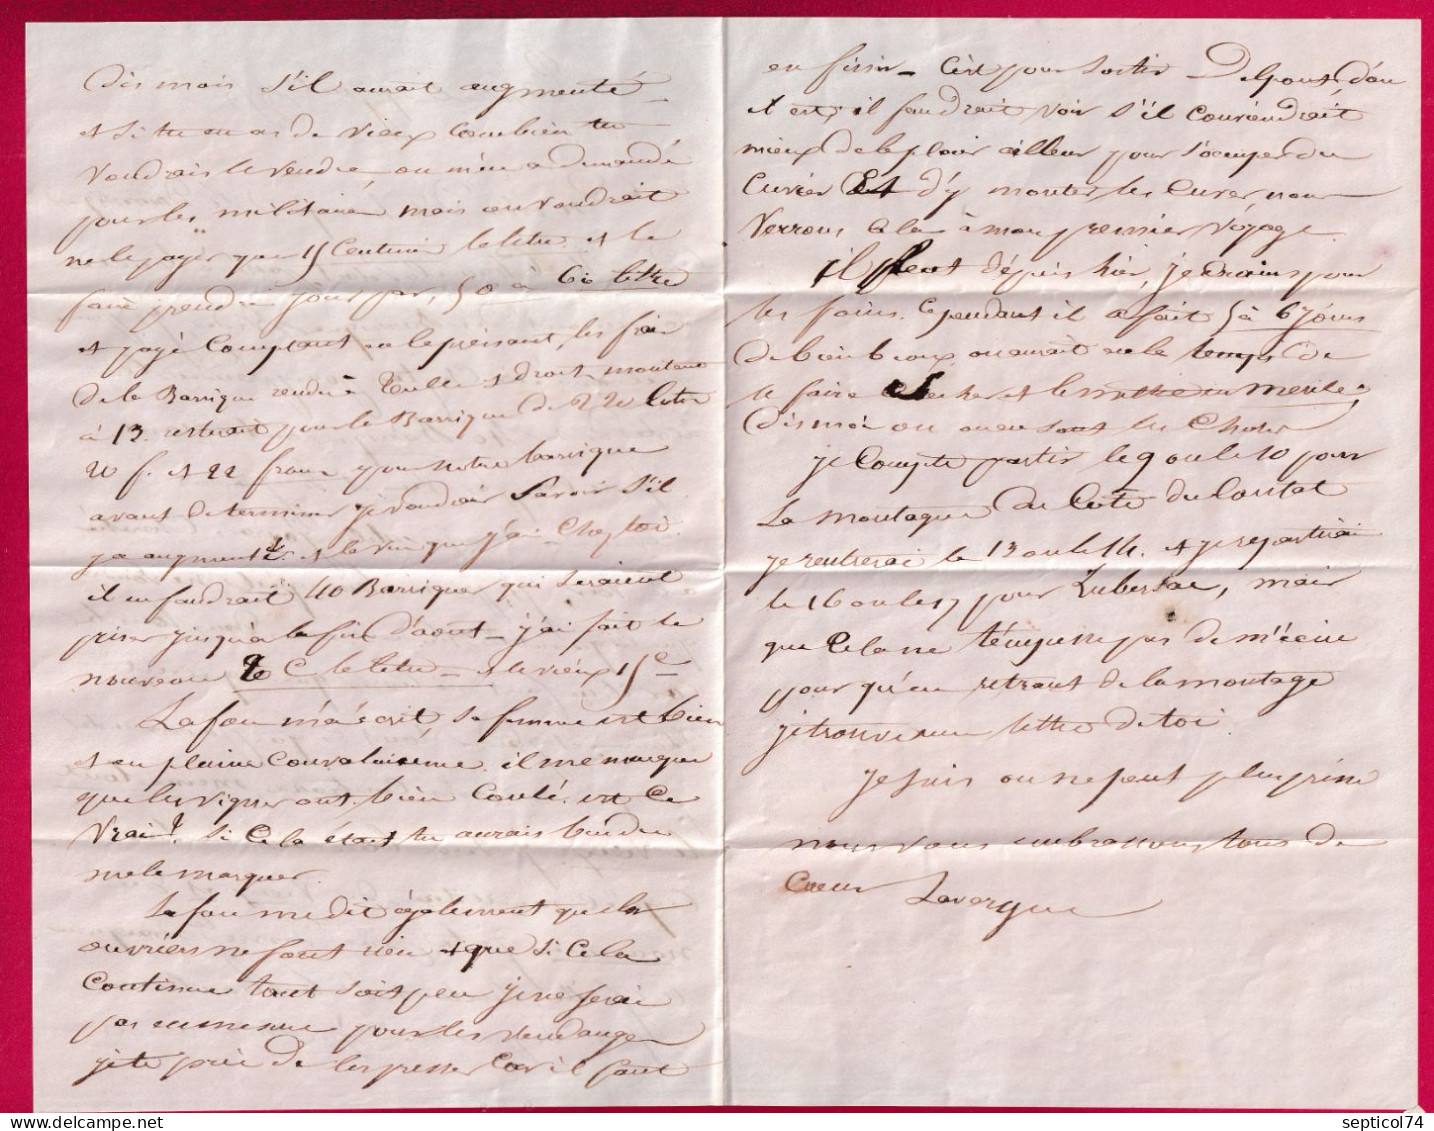 Dis mois s'il aurait augmenté
et si tu en as de vieux combien tu
voudrais le vendre, on m'en a demandé
pour les militaires mais on voudrait
ne le payer que 15 centimes le litre et le
faire prendre jour par, 50 à 60 litres
et payé comptant en le prenant, les frais
de la Barrique rendu à Tulle et droit montent
à 13. resterait pour la Barrique de 220 litres
20 f. et 22 francs pour notre barrique
avant de terminer je voudrais savoir s'il
y a augmenté. et le vin que j'ai chez toi
il en faudrait 40 Barriques qui seraient
prises jusqu'à la fin d'août _ j'ai fait le
nouveau c le litre _ et le vieux 15c
Lafon m'a écrit, sa femme est bien
et en pleine convalaisence. il me marque
que les vignes ont bien coulé. est ce
vrai? si cela était tu aurais bien du
me le marquer.
Lafon me dit également que les
ouvriers ne font rien et que si cela
continue tant soit peu je ne serai
pas en mesure pour les vendanges
je te prie de les presser car il faut
en finir _ C'est pour sortir Delpont d'où
il est; il faudrait voir s'il conviendrait
mieux de le placer ailleur pour s'occuper du
cuvier Et d'y monter les cuves, nous
verrons cela à mon premier voyage.
il pleut dépuis hier, je crains pour
les foins. cependant il a fait 5 à 6 jours
de bien beaux on aurait eu le temps de
le faire sécher et le mettre en meule.
Dis moi ou en sont les choses
je compte partir le 9 ou le 10 pour
la montagne du coté du Cantal
je rentrerai le 13 ou le 14. et je repartirai
le 16 ou le 17 pour Lubersac, mais
que cela ne t'empeche pas de m'écrire
pour qu'en retrant de la montagne
je trouve une lettre de toi.
je suis on ne peut plus préssé
nous vous embrassons tous de
cœur Lavergne
septicol74